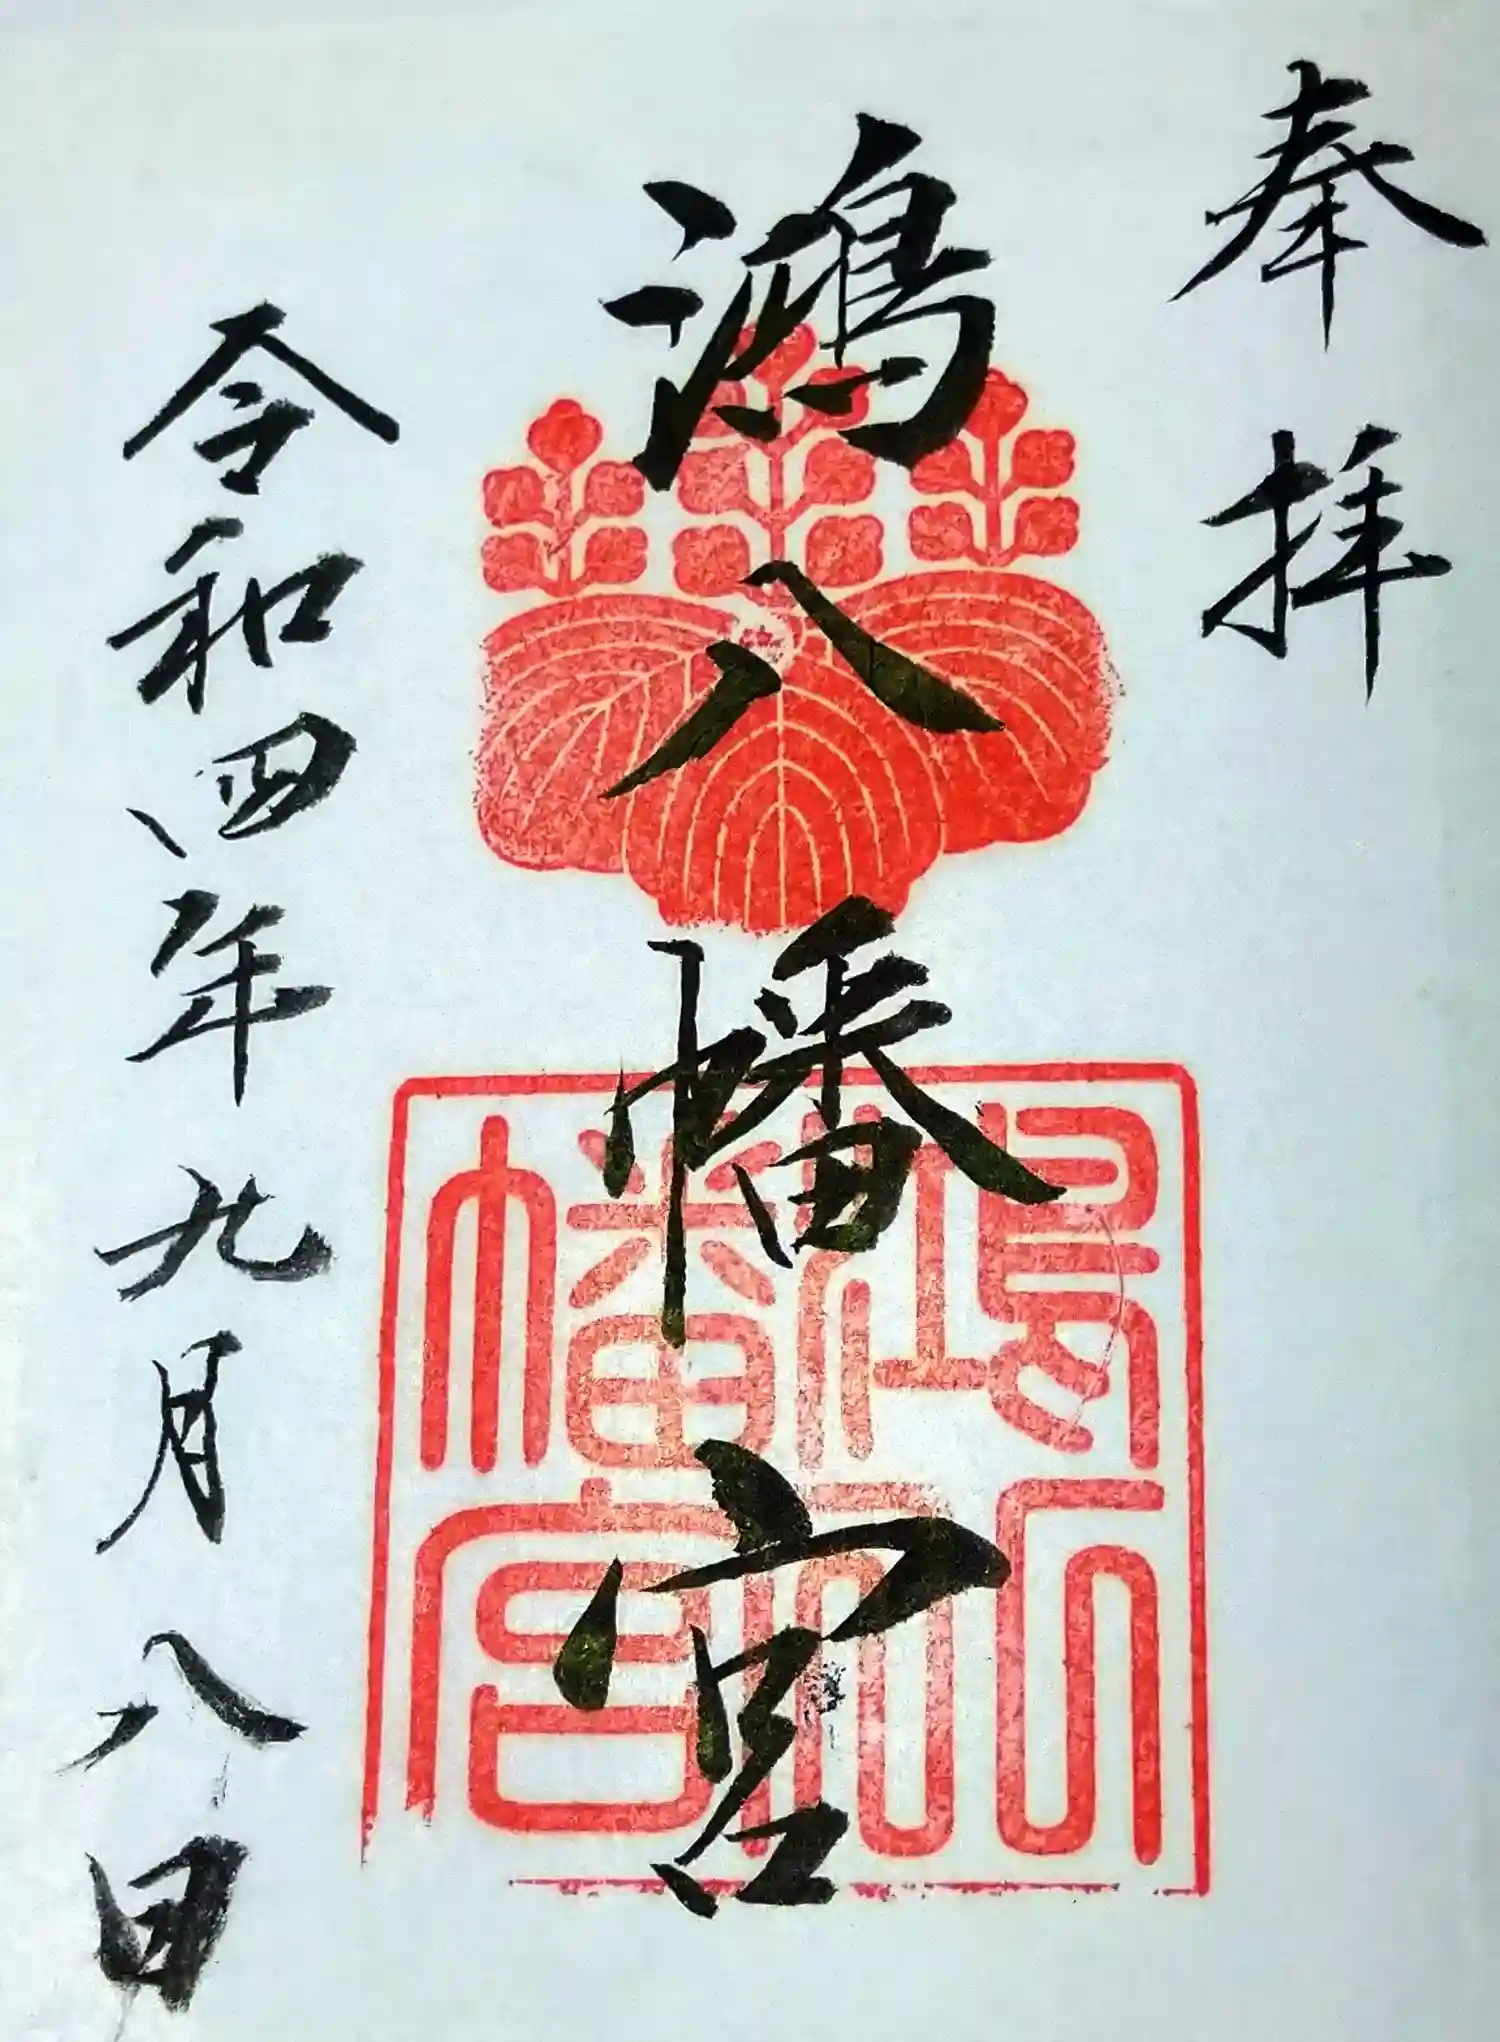 奉拝
鴻八幡宮
令和四年九月八日
鴻八幡宮